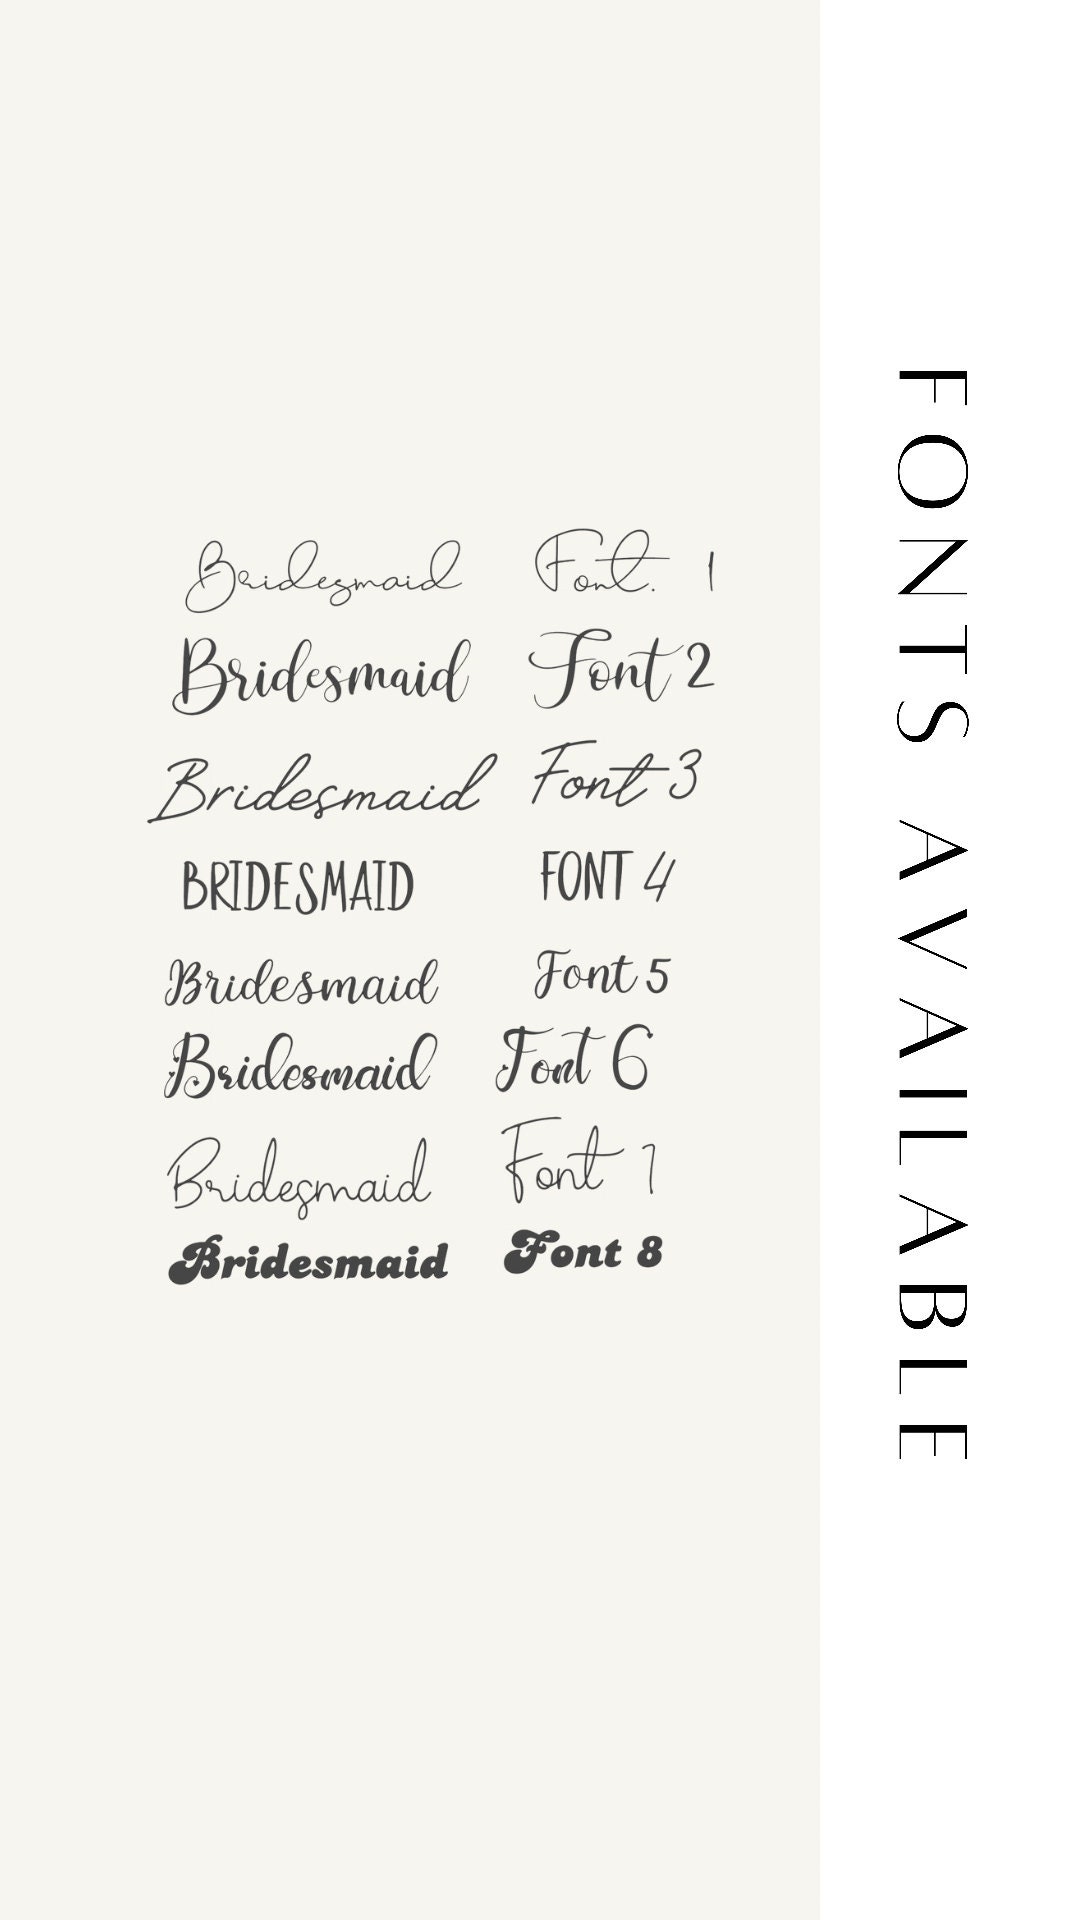 Bridesmaid Font. 1
Bridesmaid Font 2
Bridesmaid Font 3
BRIDESMAID FONT 4
Bridesmaid Font 5
Bridesmaid Font 6
Bridesmaid Font 7
Bridesmaid Font 8
FONTS AVAILABLE